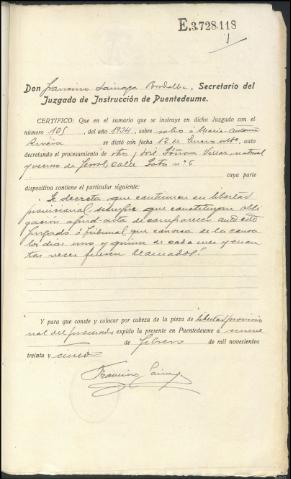 E.3.728.118
1
Don Francisco Lainez, Secretario del
Juzgado de Instrucción de Puentedeume.
CERTIFICO: Que en el sumario que se instruye en dicho Juzgado con el
número 105 del año 1934, sobre robo a María Antonia
Rivera se dictó con fecha 12 de Enero, auto
decretando el procesamiento de otro y José
y vecino de Ferrol, calle Soto nº 5
cuya parte
dispositiva contiene el particular siguiente:
"Se decreta que continúe en libertad
provisional siempre que constituyan obli
gación apud-acta de comparecer ante este
Juzgado ó Tribunal que conozca de la causa
los días uno y quince de cada mes y cuan
tas veces fuesen llamados."
Y para que conste y colocar por cabeza de la pieza de libertad provisio
nal del procesado expido la presente en Puentedeume a
de febrero de mil novecientos
treinta y cinco
Francisco Lainez